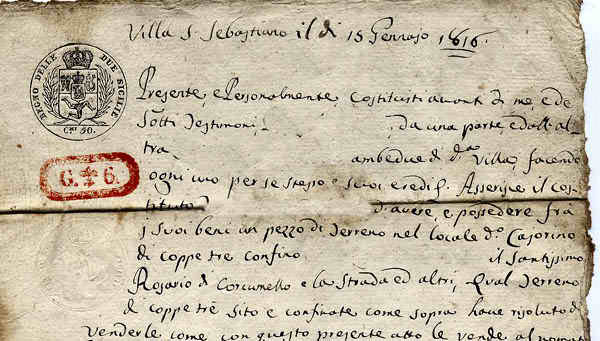 Villa S. Sebastiano il dì 15 Gennajo 1816.
REGNO DELLE DUE SICILIE
Cni 50.
G. 6.
Presente, e Personalmente costituiti avant di me, e de
Sotti Testimonj da una parte, e dall'al
tra ambedue di da Villa, facendo
ogni uno per se stesso e suoi eredi &. Asserisce il cos
tituto d'avere, e possedere fra
j suoi beni un pezzo di terreno nel locale do Casorino
di coppe tre confino il Santissimo
Rosario di Corcumello e la Strada ed altri, Qual Terreno
di coppe tre sito e confinate come sopra have risoluto di
venderle come con questo presente atto le vende al